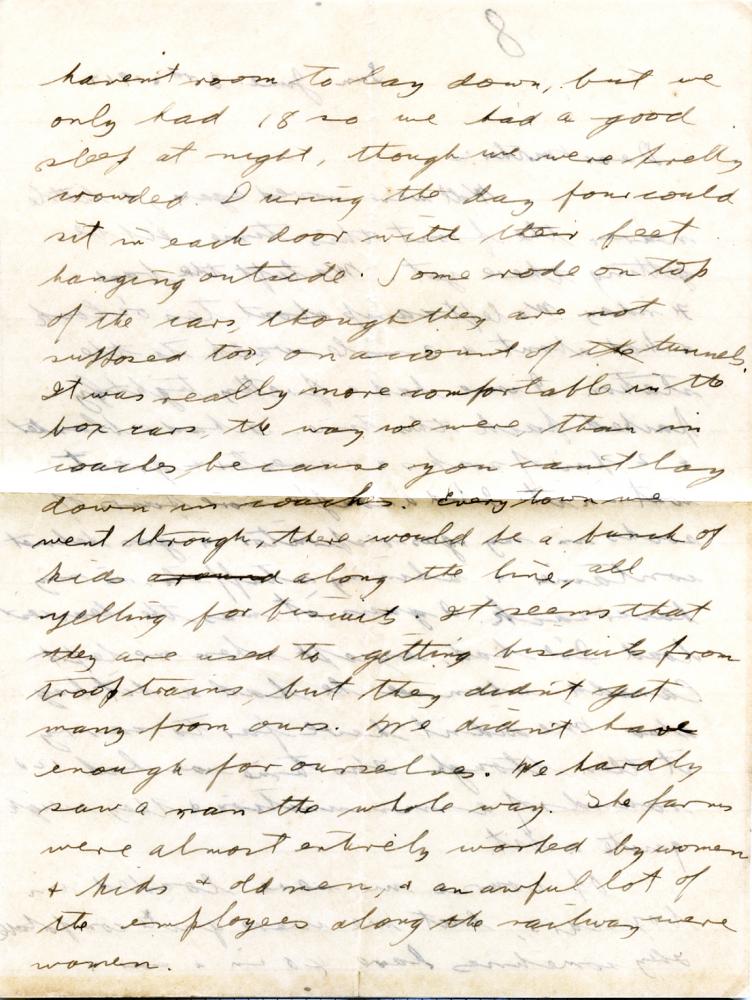 8
haven't room to lay down, but we
only had 18 so we had a good
sleep at night, though we were pretty
crowded During the day four could
sit in each door with their feet
hanging outside. Some rode on top
of the cars, though they are not
supposed too, on account of the tunnels.
It was really more comfortable in the
box cars, the way we were than in
coaches because you can't lay
down in coaches. Every town we
went through, there would be a bunch of
kids around along the line, all
yelling for biscuits. It seems that
they are used to getting biscuits from
troop trains, but they didn't get
many from ours. We didn't have
enough for ourselves. We hardly
saw a man the whole way. The farms
were almost entirely worked by women
+ kids + old men, + an awful lot of
the employees along the railway were
women.